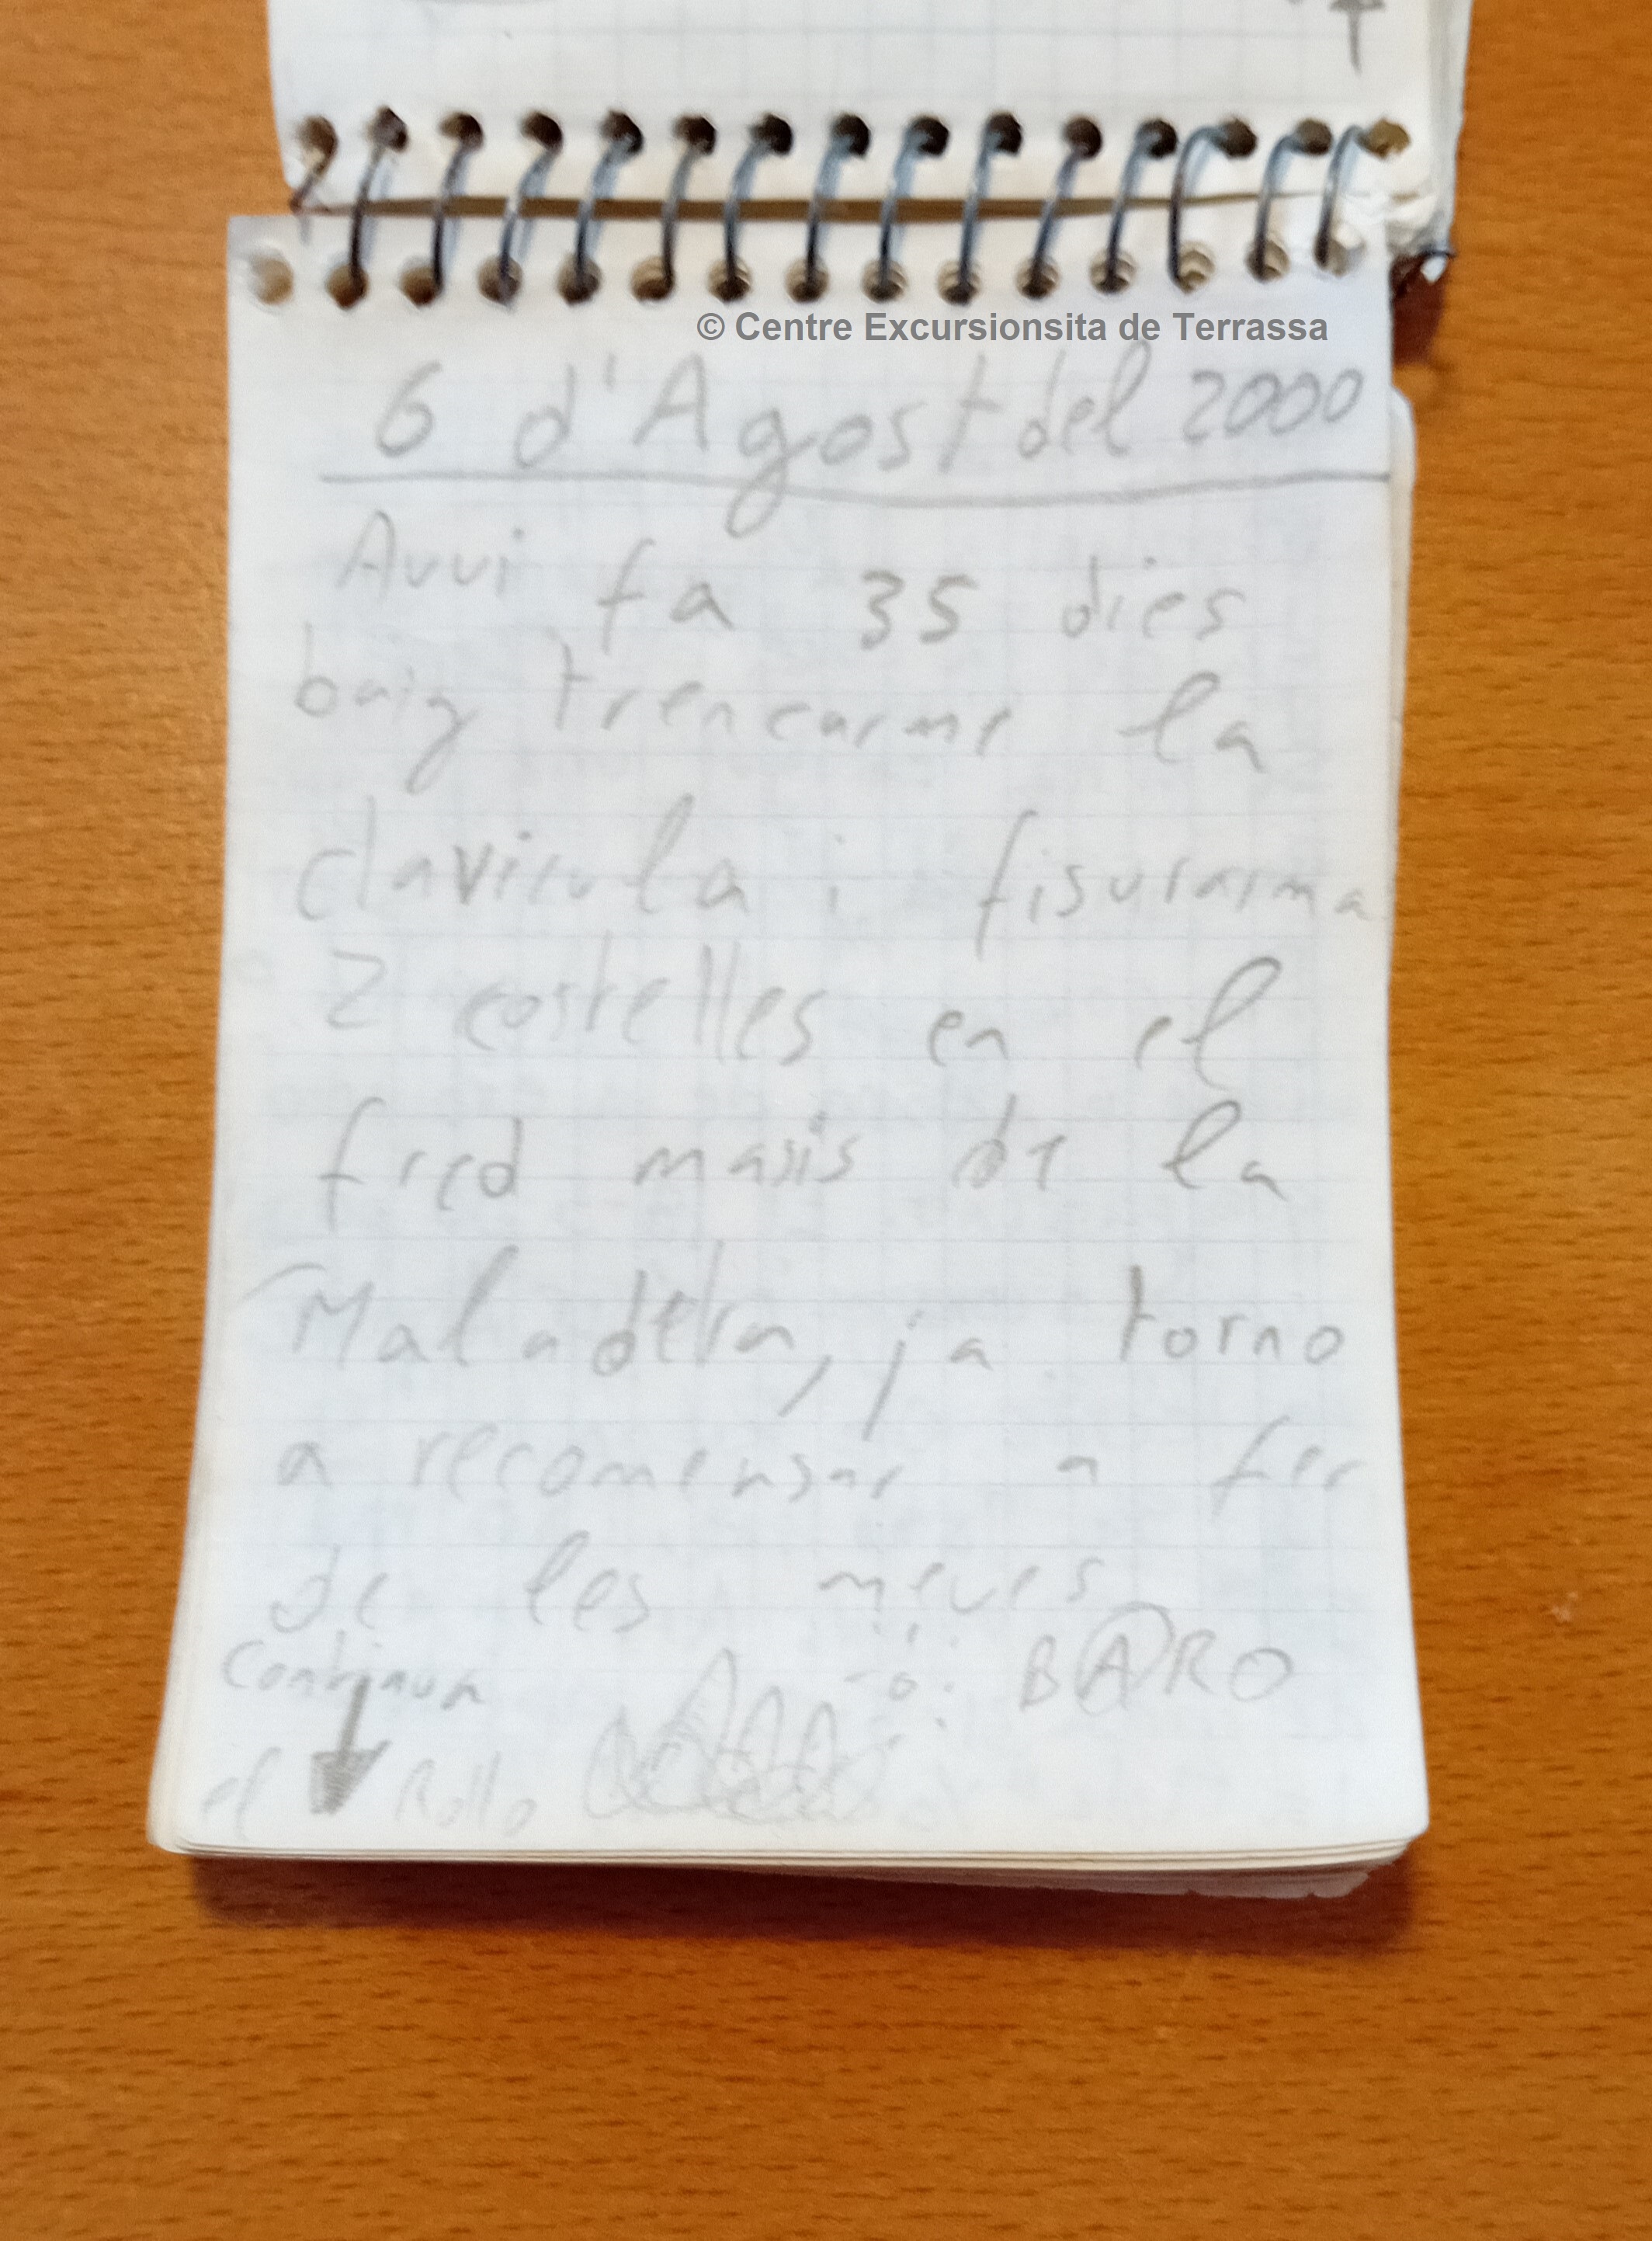 © Centre Excursionsita de Terrassa
6 d'Agost del 2000
Avui fa 35 dies
baig trencarme la
clavicula i fisurarma
2 costelles en el
fred masis de la
Maladeta, ja torno
a recomensar a fer
de les meves
Continua BARO
el Rollo